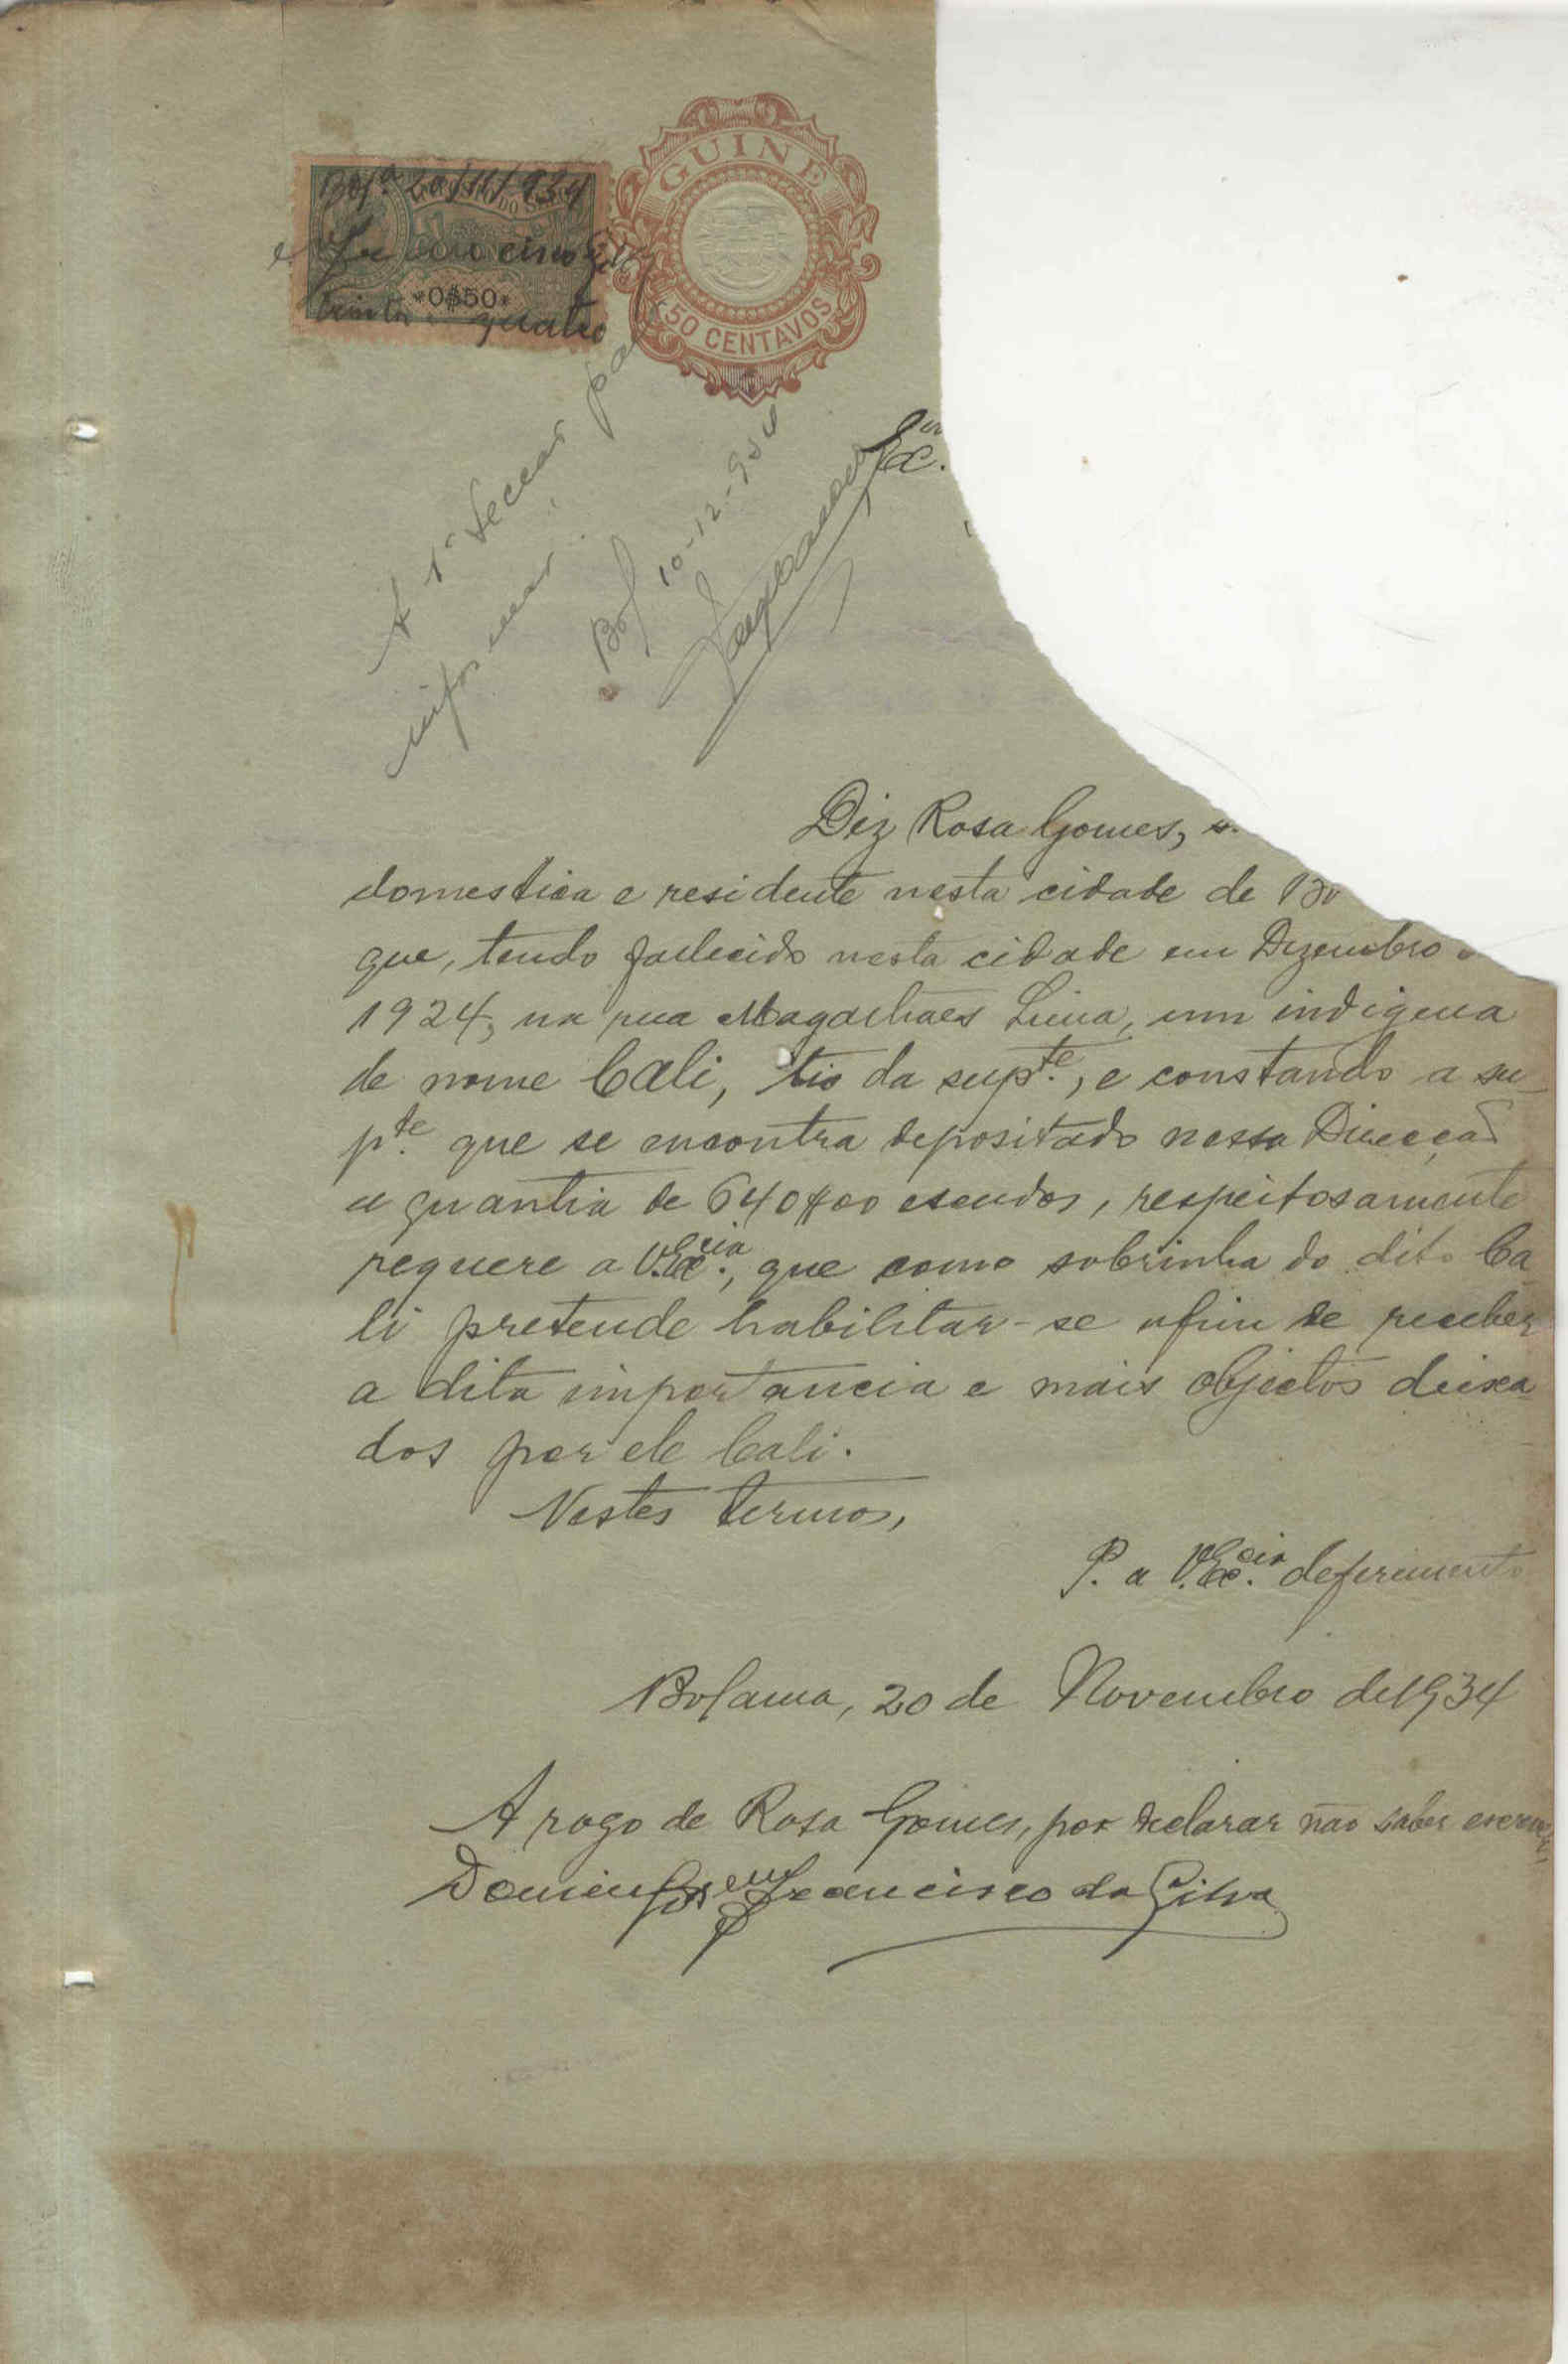 GUINÉ
50 CENTAVOS
Bolª 20/11/934
*0$50*
trinta e quatro
A 1ª Seccão para
informar.
Bol 10-12-934
Exmº
Diz Rosa Gomes,
domestica e residente nesta cidade de Bo
que, tendo falecido nesta cidade em Dezembro
1924, na rua Magalhães Lima, um indigena
de nome Cali, tio da supte., e constando a su
pte. que se encontra depositado nessa Direcção
a quantia de 640$00 escudos, respeitosamente
requere a V.Excia., que como sobrinha do dito Ca
li pretende habilitar-se afim de receber
a dita importancia e mais objectos deixa-
dos por ele Cali.
Nestes termos,
P. a V.Excia. deferimento
Bolama, 20 de Novembro de 1934
A rogo de Rosa Gomes, por declarar não saber escrever
Domingos Francisco da Silva